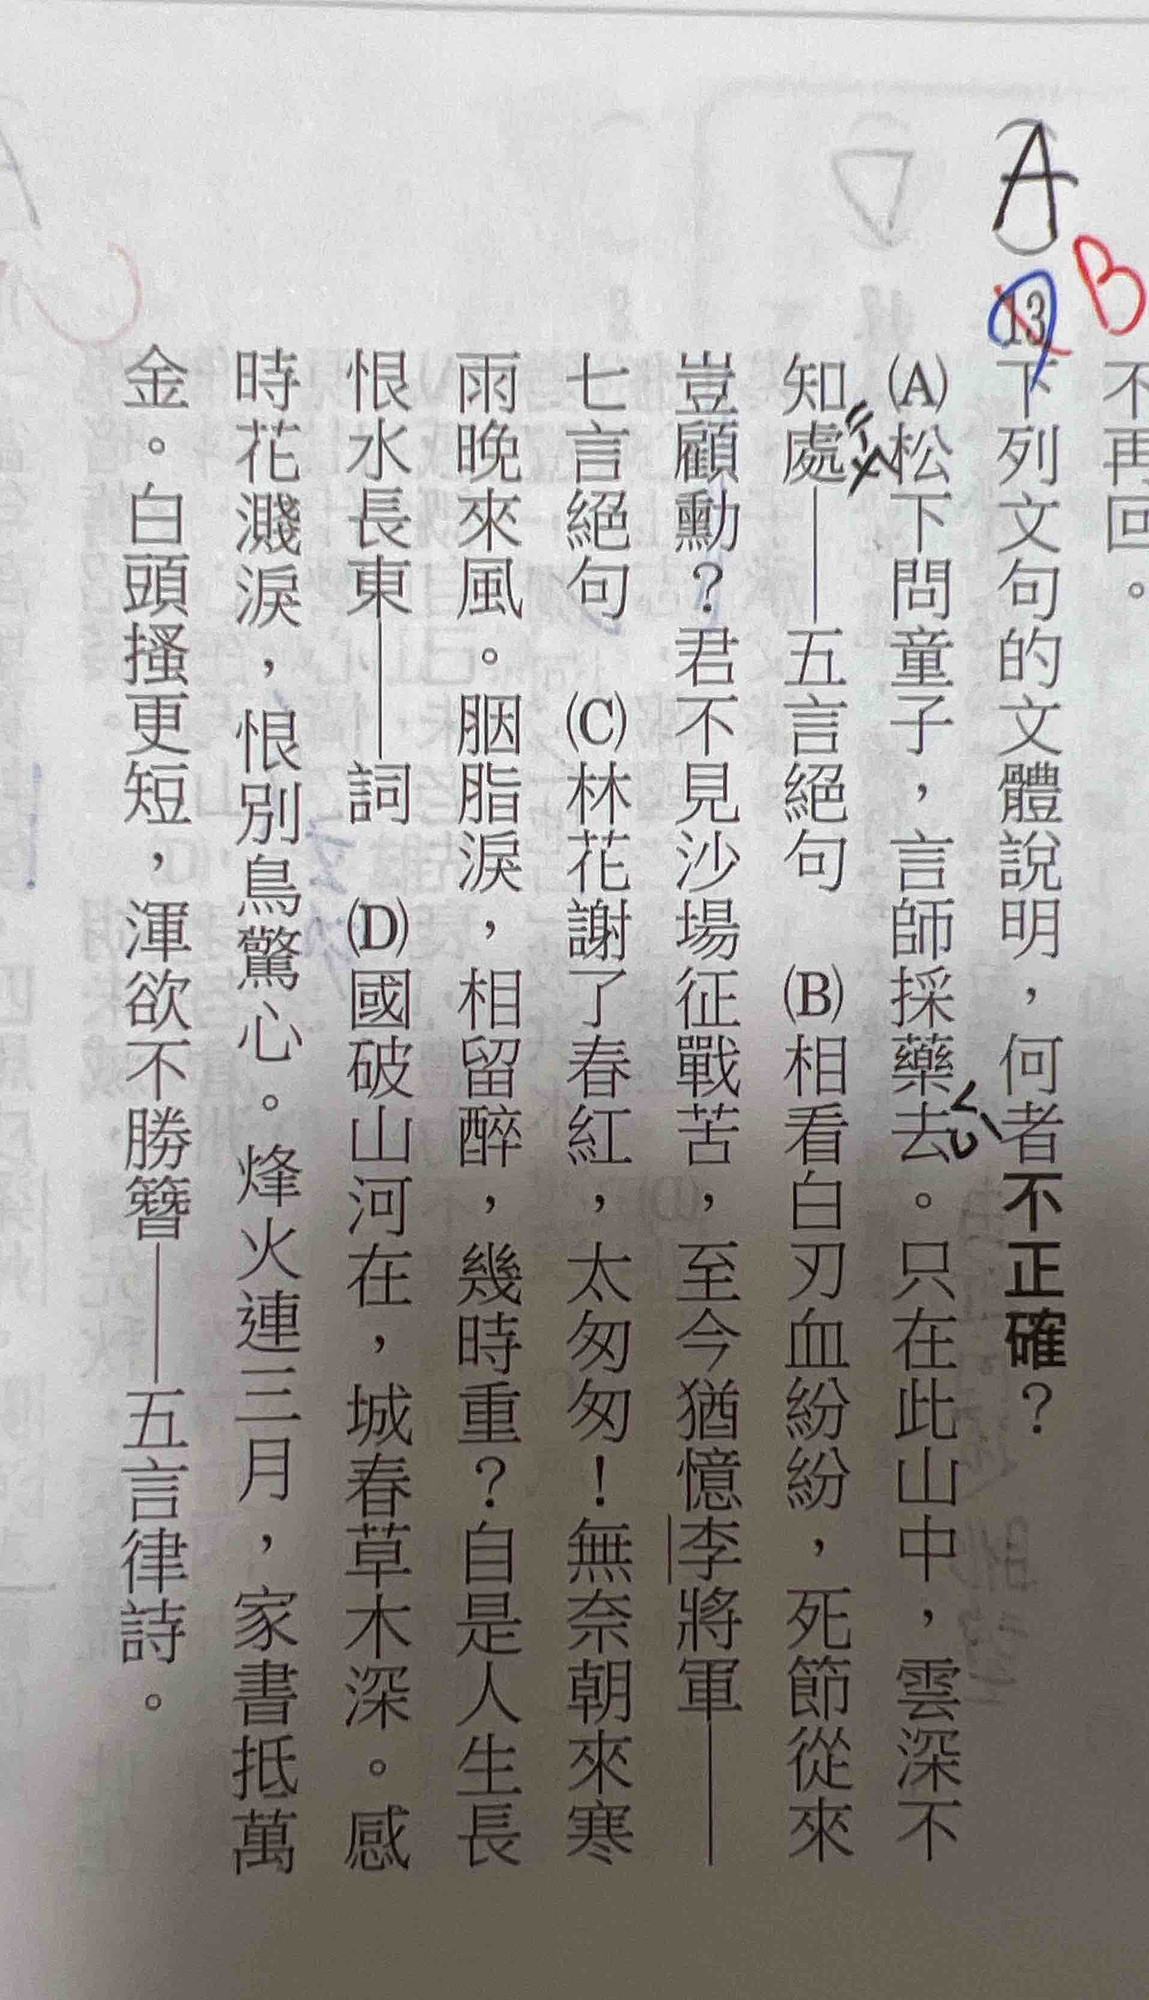 不再回。
A
B
13下列文句的文體說明，何者不正確？
(A)松下問童子，言師採藥去。只在此山中，雲深不
ㄑㄩ
知處——五言絕句　(B)相看白刃血紛紛，死節從來
豈顧勳？君不見沙場征戰苦，至今猶憶李將軍——
七言絕句　(C)林花謝了春紅，太匆匆！無奈朝來寒
雨晚來風。胭脂淚，相留醉，幾時重？自是人生長
恨水長東——詞　(D)國破山河在，城春草木深。感
時花濺淚，恨別鳥驚心。烽火連三月，家書抵萬
金。白頭搔更短，渾欲不勝簪——五言律詩。